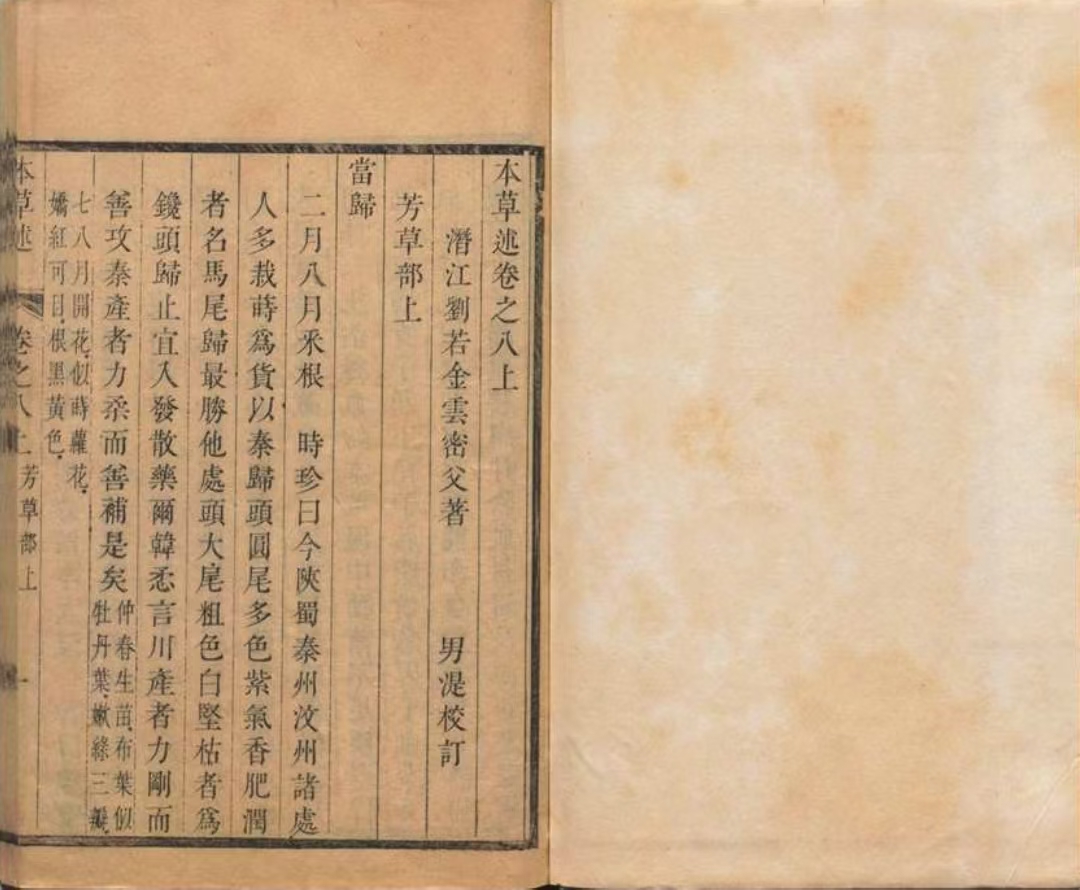 本草述卷之八上
潛江劉若金雲密父著 男湜校訂
芳草部上
當歸
二月八月釆根 時珍曰今陝蜀秦州汶州諸處
人多栽蒔爲貨以秦歸頭圓尾多色紫氣香肥潤
者名馬尾歸最勝他處頭大尾粗色白堅枯者爲
鑱頭歸止宜入發散藥爾韓𢙢言川產者力剛而
善攻秦產者力柔而善補是矣仲春生苗布葉似
牡丹葉嫩綠三瓣
七八月開花似蒔蘿花
嬌紅可目根黑黃色
本草述 卷之八上 芳草部上 一